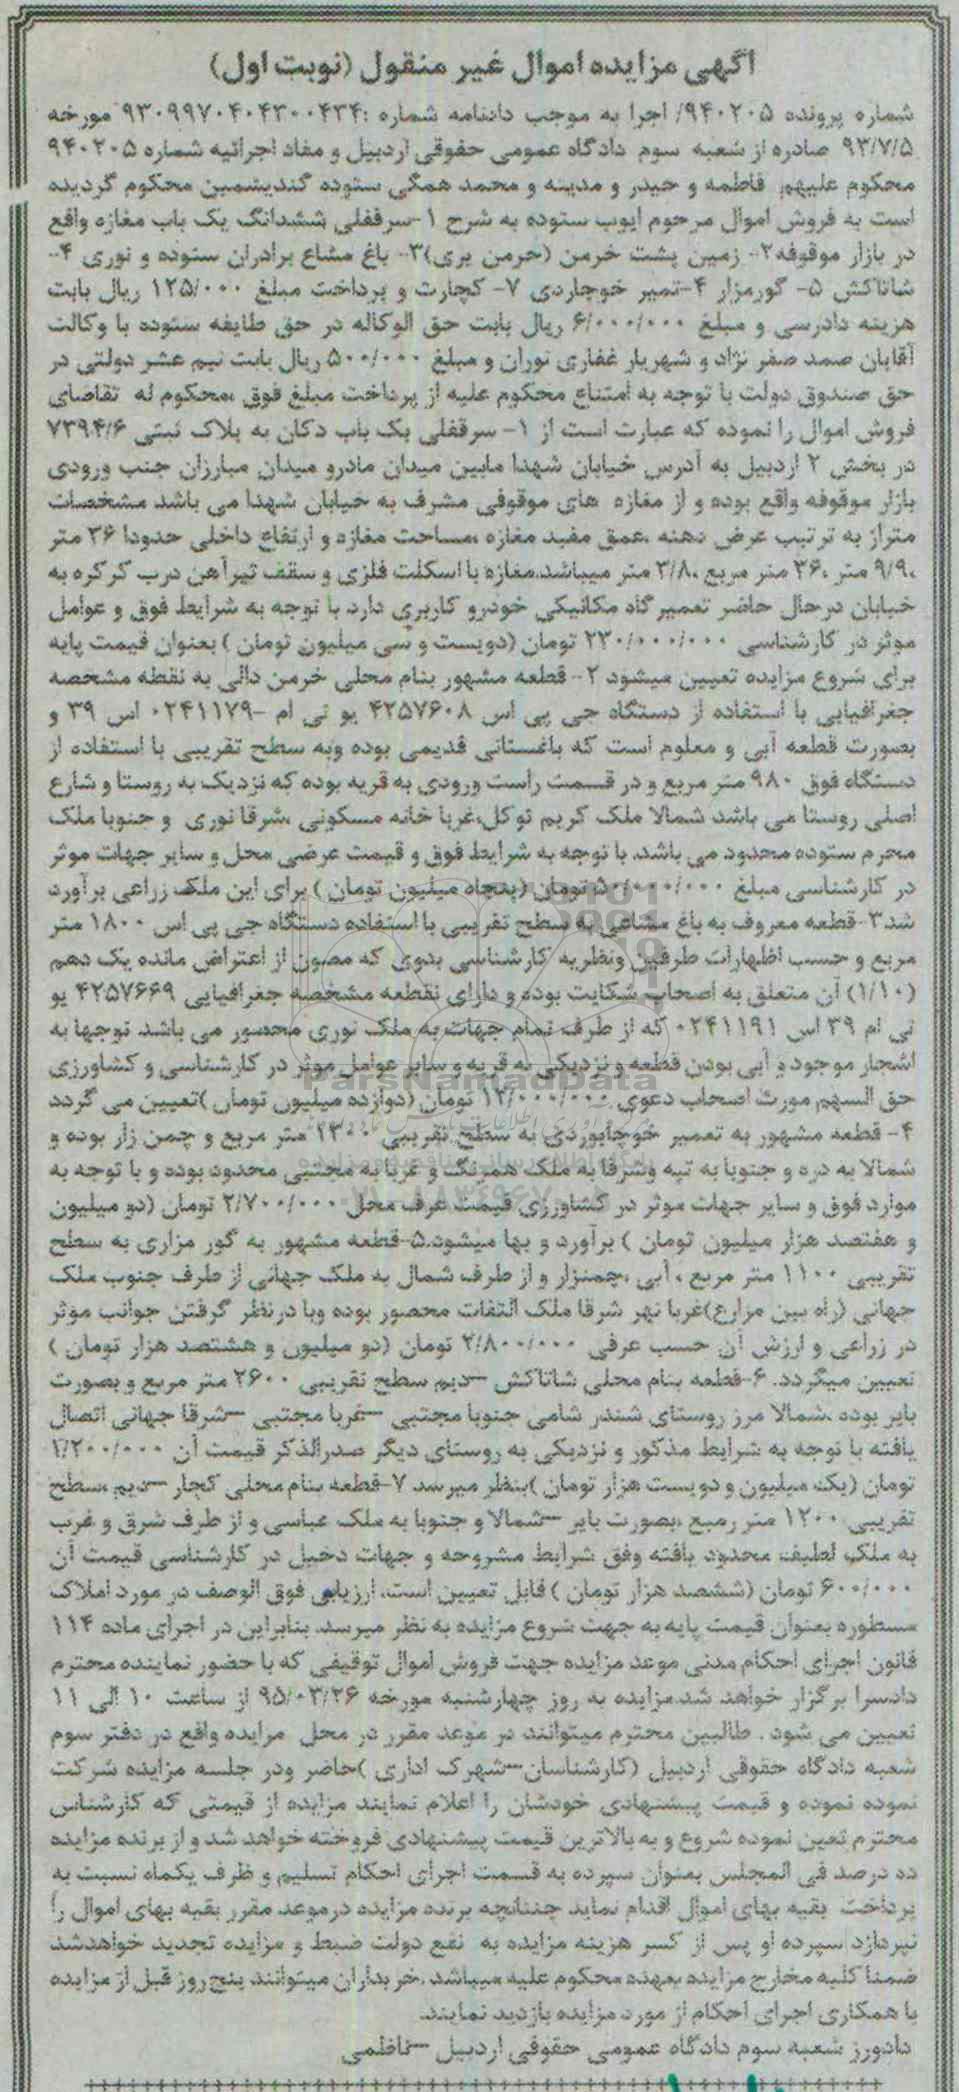 آگهی مزایده اموال غیر منقول (نوبت اول)
شماره پرونده ۹۴۰۲۰۵/ اجرا به موجب دادنامه شماره :۹۳۰۹۹۷۰۴۰۴۳۰۰۴۳۴ مورخه
۹۳/۷/۵ صادره از شعبه سوم دادگاه عمومی حقوقی اردبیل و مفاد اجرائیه شماره ۹۴۰۲۰۵
محکوم علیهم فاطمه و حیدر و مدینه و محمد همگی ستوده گندیشمین محکوم گردیده
است به فروش اموال مرحوم ایوب ستوده به شرح ۱-سرقفلی ششدانگ یک باب مغازه واقع
در بازار موقوفه۲- زمین پشت خرمن (خرمن یری)۳- باغ مشاع برادران ستوده و نوری ۴-
شاناکش ۵- گورمزار ۴-تمیر خوجاردی ۷- کچارت و پرداخت مبلغ ۱۲۵/۰۰۰ ریال بابت
هزینه دادرسی و مبلغ ۶/۰۰۰/۰۰۰ ریال بابت حق الوکاله در حق طایفه ستوده با وکالت
آقایان صمد صفر نژاد و شهریار غفاری نوران و مبلغ ۵۰۰/۰۰۰ ریال بابت نیم عشر دولتی در
حق صندوق دولت با توجه به امتناع محکوم علیه از پرداخت مبلغ فوق ،محکوم له تقاضای
فروش اموال را نموده که عبارت است از ۱- سرقفلی یک باب دکان به پلاک ثبتی ۷۳۹۴/۶
در بخش ۲ اردبیل به آدرس خیابان شهدا مابین میدان مادرو میدان مبارزان جنب ورودی
بازار موقوفه واقع بوده و از مغازه های موقوفی مشرف به خیابان شهدا می باشد مشخصات
متراژ به ترتیب عرض دهنه ،عمق مفید مغازه ،مساحت مغازه و ارتفاع داخلی حدودا ۳۶ متر
،۹/۹ متر ،۳۶ متر مربع ،۳/۸ متر میباشد.مغازه با اسکلت فلزی و سقف تیرآهن درب کرکره به
خیابان درحال حاضر تعمیرگاه مکانیکی خودرو کاربری دارد با توجه به شرایط فوق و عوامل
موثر در کارشناسی ۲۳۰/۰۰۰/۰۰۰ تومان (دویست و سی میلیون تومان ) بعنوان قیمت پایه
برای شروع مزایده تعیین میشود ۲- قطعه مشهور بنام محلی خرمن دالی به نقطه مشخصه
جغرافیایی با استفاده از دستگاه جی پی اس ۴۲۵۷۶۰۸ یو تی ام -۰۲۴۱۱۷۹ اس ۳۹ و
بصورت قطعه آبی و معلوم است که باغستانی قدیمی بوده وبه سطح تقریبی با استفاده از
دستگاه فوق ۹۸۰ متر مربع و در قسمت راست ورودی به قریه بوده که نزدیک به روستا و شارع
اصلی روستا می باشد شمالا ملک کریم توکل،غربا خانه مسکونی ،شرقا نوری و جنوبا ملک
محرم ستوده محدود می باشد. با توجه به شرایط فوق و قیمت عرضی محل و سایر جهات موثر
در کارشناسی مبلغ ۵۰/۰۰۰/۰۰۰ تومان (پنجاه میلیون تومان ) برای این ملک زراعی برآورد
شد ۳-قطعه معروف به باغ مشاعی به سطح تقریبی با استفاده دستگاه جی پی اس ۱۸۰۰ متر
مربع و حسب اظهارات طرفین ونظریه کارشناسی بدوی که مصون از اعتراض مانده یک دهم
(۱/۱۰) آن متعلق به اصحاب شکایت بوده و دارای نقطعه مشخصه جغرافیایی ۴۲۵۷۶۶۹ یو
تی ام ۳۹ اس ۰۲۴۱۱۹۱ که از طرف تمام جهات به ملک نوری محصور می باشد. توجها به
اشجار موجود و آبی بودن قطعه و نزدیکی به قریه و سایر عوامل موثر در کارشناسی و کشاورزی
حق السهم مورث اصحاب دعوی ۱۲/۰۰۰/۰۰۰ تومان (دوازده میلیون تومان )تعیین می گردد
۴- قطعه مشهور به تعمیر خوجابوردی به سطح تقریبی ۲۳۰۰ متر مربع و چمن زار بوده و
شمالا به دره و جنوبا به تپه وشرقا به ملک همرنگ و غربا به مجتبی محدود بوده و با توجه به
موارد فوق و سایر جهات موثر در کشاورزی قیمت عرف محل ۲/۷۰۰/۰۰۰ تومان (دو میلیون
و هفتصد هزار میلیون تومان ) برآورد و بها میشود.۵-قطعه مشهور به گور مزاری به سطح
تقریبی ۱۱۰۰ متر مربع ، آبی ،چمنزار و از طرف شمال به ملک جهانی از طرف جنوب ملک
جهانی (راه بین مزارع)غربا نهر شرقا ملک التفات محصور بوده وبا درنظر گرفتن جوانب موثر
در زراعی و ارزش آن حسب عرفی ۲/۸۰۰/۰۰۰ تومان (دو میلیون و هشتصد هزار تومان )
تعیین میگردد. ۶-قطعه بنام محلی شاناکش –دیم سطح تقریبی ۲۶۰۰ متر مربع و بصورت
بایر بوده ،شمالا مرز روستای شندر شامی جنوبا مجتبی –غربا مجتبی –شرقا جهانی اتصال
یافته با توجه به شرایط مذکور و نزدیکی به روستای دیگر صدرالذکر قیمت آن ۱/۲۰۰/۰۰۰
تومان (یک میلیون و دویست هزار تومان )بنظر میرسد ۷-قطعه بنام محلی کچار –دیم ،سطح
تقریبی ۱۲۰۰ متر رمبع ،بصورت بایر –شمالا و جنوبا به ملک عباسی و از طرف شرق و غرب
به ملک لطیف محدود یافته وفق شرایط مشروحه و جهات دخیل در کارشناسی قیمت آن
۶۰۰/۰۰۰ تومان (ششصد هزار تومان ) قابل تعیین است. ارزیابی فوق الوصف در مورد املاک
مسطوره بعنوان قیمت پایه به جهت شروع مزایده به نظر میرسد. بنابراین در اجرای ماده ۱۱۴
قانون اجرای احکام مدنی موعد مزایده جهت فروش اموال توقیفی که با حضور نماینده محترم
دادسرا برگزار خواهد شد.مزایده به روز چهارشنبه مورخه ۹۵/۰۳/۲۶ از ساعت ۱۰ الی ۱۱
تعیین می شود . طالبین محترم میتوانند در موعد مقرر در محل مزایده واقع در دفتر سوم
شعبه دادگاه حقوقی اردبیل (کارشناسان–شهرک اداری )حاضر ودر جلسه مزایده شرکت
نموده نموده و قیمت پیشنهادی خودشان را اعلام نمایند مزایده از قیمتی که کارشناس
محترم تعین نموده شروع و به بالاترین قیمت پیشنهادی فروخته خواهد شد و از برنده مزایده
ده درصد فی المجلس بعنوان سپرده به قسمت اجرای احکام تسلیم و ظرف یکماه نسبت به
پرداخت بقیه بهای اموال اقدام نماید چنانچه برنده مزایده درموعد مقرر بقیه بهای اموال را
نپردازد سپرده او پس از کسر هزینه مزایده به نفع دولت ضبط و مزایده تجدید خواهدشد
ضمنا کلیه مخارج مزایده بعهده محکوم علیه میباشد .خریداران میتوانند پنج روز قبل از مزایده
با همکاری اجرای احکام از مورد مزایده بازدید نمایند.
دادورز شعبه سوم دادگاه عمومی حقوقی اردبیل –ناظمی
ParsNamadData